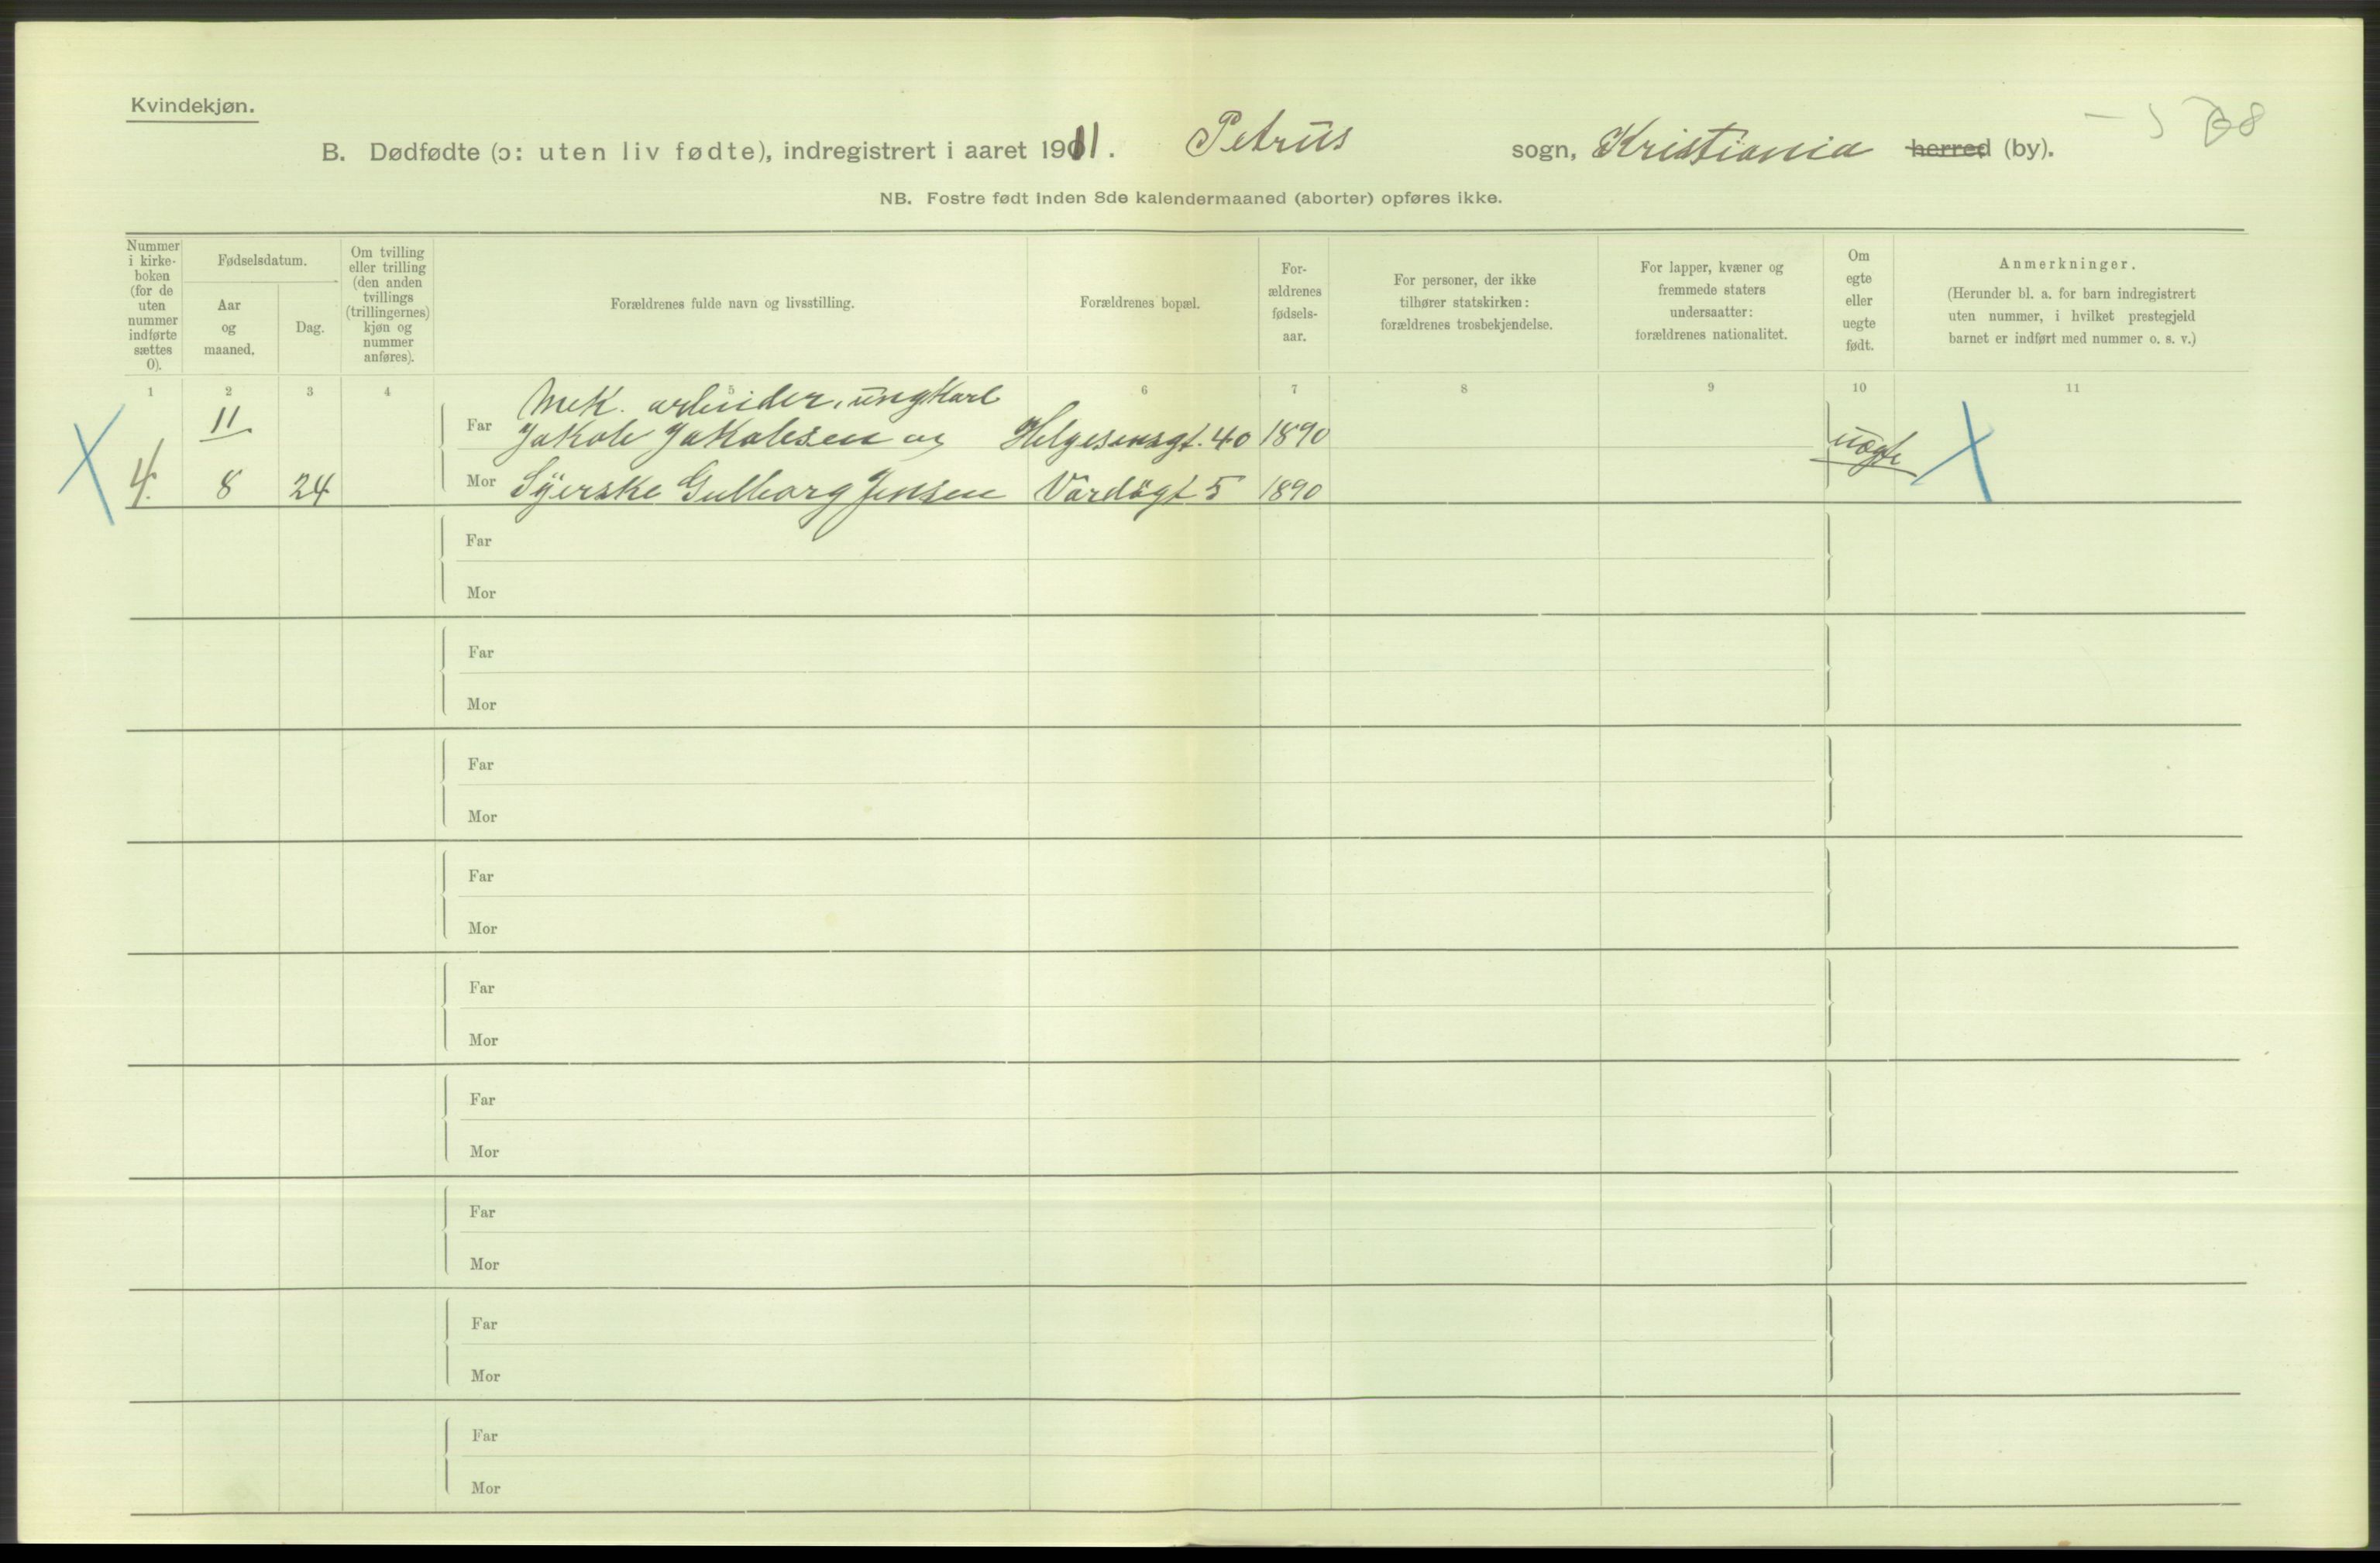 Kvindekjøn.
B. Dødfødte (ɔ: uten liv fødte), indregistrert i aaret 1911. Petrus sogn, Kristiania herred (by).
NB. Fostre født inden 8de kalendermaaned (aborter) opføres ikke.
Nummer i kirke-boken (for de uten nummer indførte sættes 0).
Fødselsdatum.
Aar og maaned.
Dag.
Om tvilling eller trilling (den anden tvillings (trillingernes) kjøn og nummer anføres).
Forældrenes fulde navn og livsstilling.
Forældrenes bopæl.
For-ældrenes fødsels-aar.
For personer, der ikke tilhører statskirken: forældrenes trosbekjendelse.
For lapper, kvæner og fremmede staters undersaatter: forældrenes nationalitet.
Om egte eller uegte født.
Anmerkninger.
(Herunder bl. a. for barn indregistrert uten nummer, i hvilket prestegjeld barnet er indført med nummer o. s. v.)
1 2 3 4 5 6 7 8 9 10 11
11 Mek. arbeider, ungkarl
Far Jakob Jakobsen og Helgesensgt. 40 1890 uægte
4. 8 24 Mor Syerske Gulborg Jensen Vardøgt 5 1890
Far
Mor
Far
Mor
Far
Mor
Far
Mor
Far
Mor
Far
Mor
Far
Mor
Far
Mor
Far
Mor